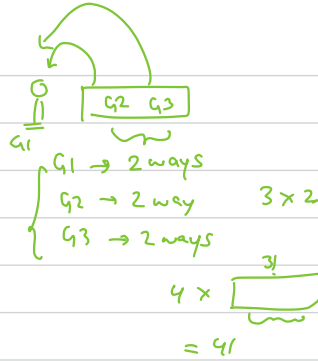 G2 G3
G1
G1 → 2 ways
G2 → 2 way 3 × 2
G3 → 2 ways
3!
4 ×
= 4!